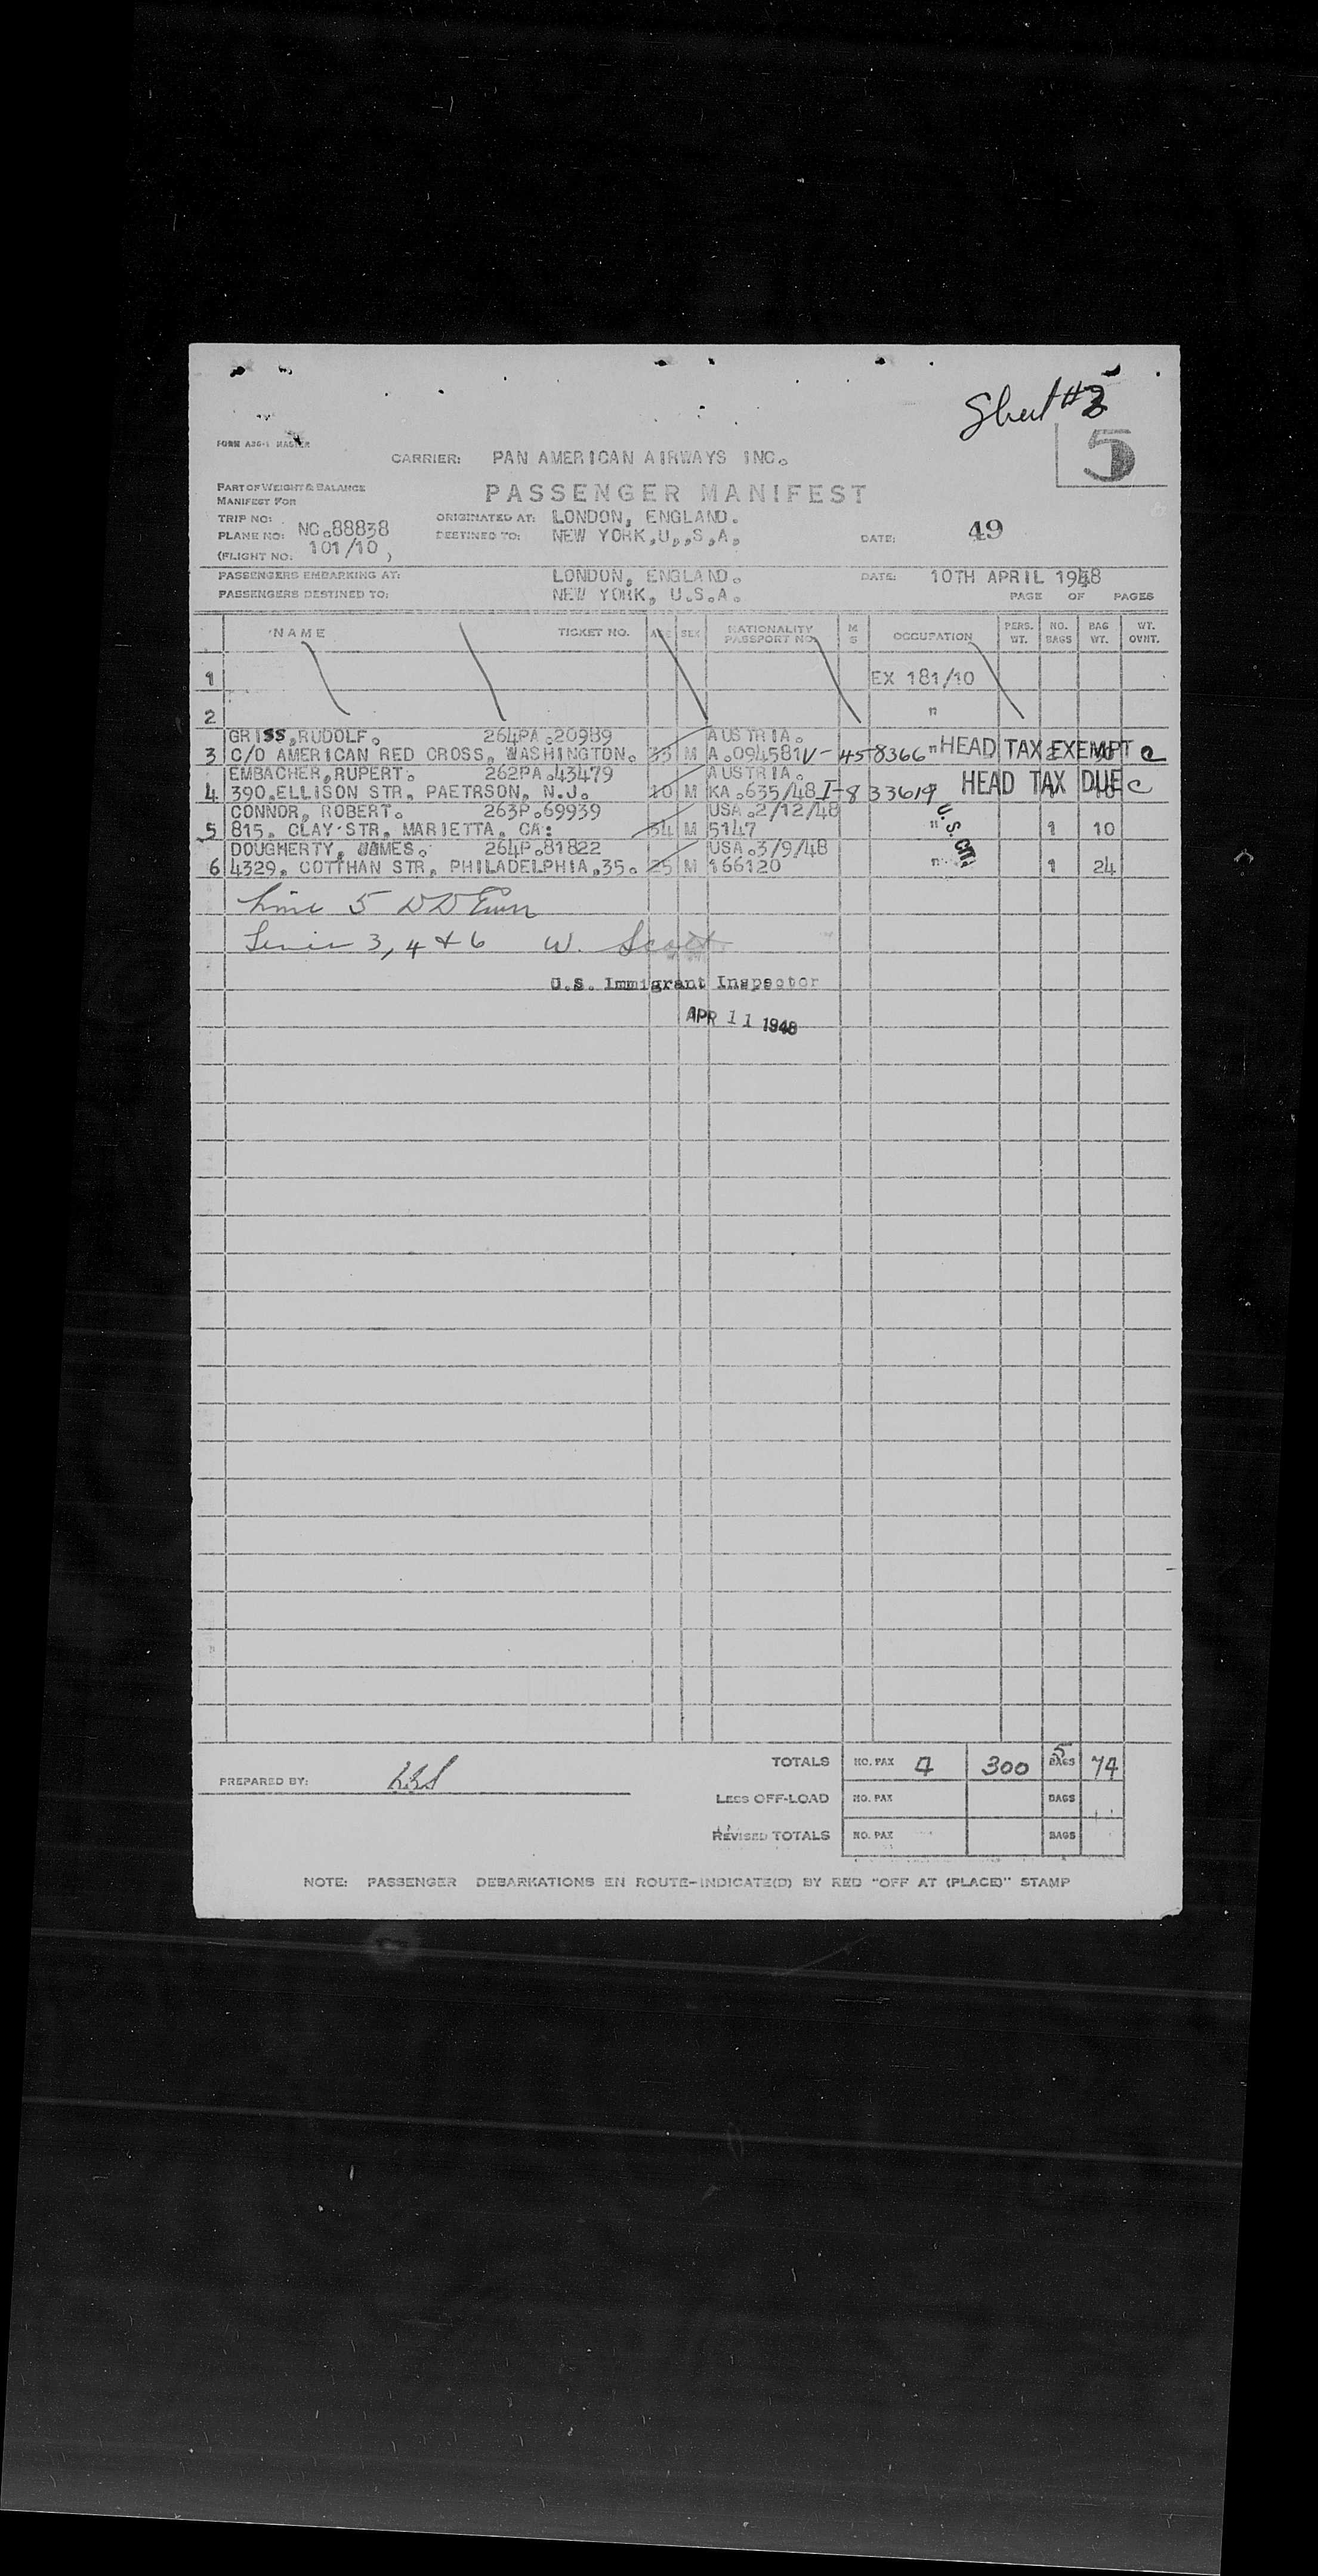 Sheet #3
5
FORM A36-1 MASTER
CARRIER: PAN AMERICAN AIRWAYS INC.
PART OF WEIGHT & BALANCE
MANIFEST FOR
PASSENGER MANIFEST
TRIP NO:
ORIGINATED AT: LONDON, ENGLAND.
PLANE NO: NC.88838
DESTINED TO: NEW YORK,U,,S,A,
DATE: 49
(FLIGHT NO. 101/10 )
PASSENGERS EMBARKING AT: LONDON, ENGLAND. DATE: 10TH APRIL 1948
PASSENGERS DESTINED TO: NEW YORK, U.S.A. PAGE OF PAGES
NAME TICKET NO. AGE SEX NATIONALITY PASSPORT NO. M S OCCUPATION PERS. WT. NO. BAGS BAG WT. WT. OVHT.
1 EX 181/10
2 "
GRISS,RUDOLF. 264PA.20989 AUSTRIA.
3 C/O AMERICAN RED CROSS, WASHINGTON. 35 M A.094581 V-458366 " HEAD TAX EXEMPT C
EMBACHER,RUPERT. 262PA.43479 AUSTRIA.
4 390.ELLISON STR, PAETRSON, N.J. 10 M KA.635/48 I-833619 HEAD TAX DUE C
CONNOR, ROBERT. 263P.69939 USA.2/12/48
5 815. CLAY STR, MARIETTA, CA: 34 M 5147 " U.S. CIT. 1 10
DOUGHERTY, JAMES. 264P.81822 USA.3/9/48
6 4329. COTTHAN STR, PHILADELPHIA,35. 25 M 166120 " 1 24
Line 5
Lines 3, 4 & 6 W. Scott
U.S. Immigrant Inspector
APR 11 1948
TOTALS NO. PAX 4 300 5 BAGS 74
PREPARED BY:
LESS OFF-LOAD NO. PAX BAGS
REVISED TOTALS NO. PAX BAGS
NOTE: PASSENGER DEBARKATIONS EN ROUTE-INDICATE(D) BY RED "OFF AT (PLACE)" STAMP